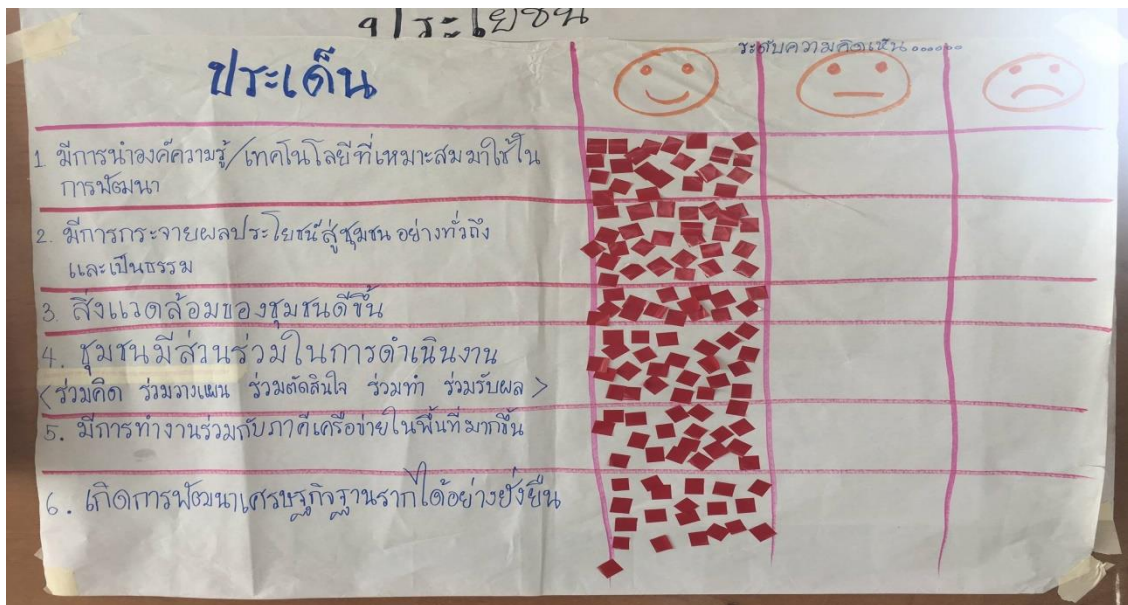 ประโยชน์
ประเด็น
ระดับความคิดเห็น......
1 มีการนำองค์ความรู้/เทคโนโลยีที่เหมาะสมมาใช้ใน
การพัฒนา
2. มีการกระจายผลประโยชน์สู่ชุมชนอย่างทั่วถึง
และเป็นธรรม
3. สิ่งแวดล้อมของชุมชนดีขึ้น
4. ชุมชนมีส่วนร่วมในการดำเนินงาน
<ร่วมคิด ร่วมวางแผน ร่วมตัดสินใจ ร่วมทำ ร่วมรับผล>
5. มีการทำงานร่วมกับภาคีเครือข่ายในพื้นที่มากขึ้น
6. เกิดการพัฒนาเศรษฐกิจฐานรากได้อย่างยั่งยืน